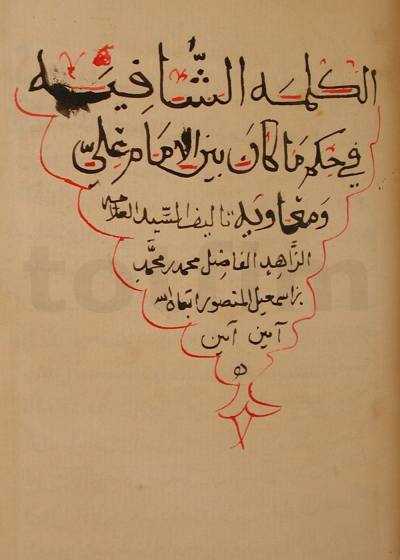 الكلمه الشافيه
في حكم ما كان بين الامام علي
ومعاويه تاليف السيد العلامه
الزاهد الفاضل محمد بن محمد
بن اسمعيل المنصور ابقاه الله
آمين آمين